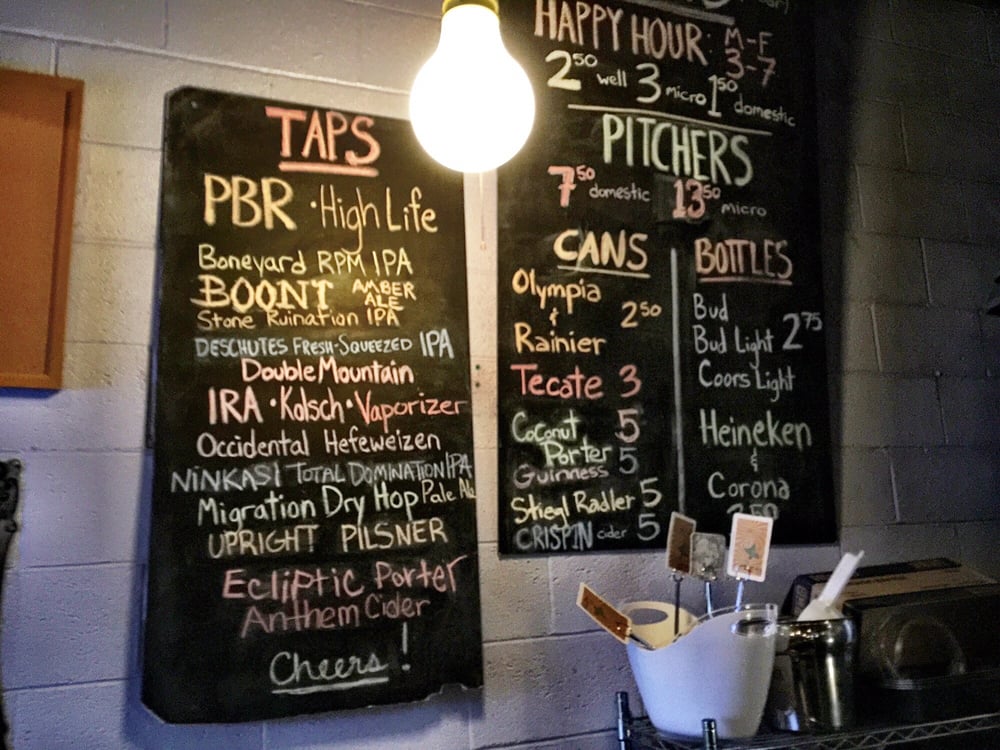 TAPS
PBR · High Life
Boneyard RPM IPA
BOONT AMBER ALE
Stone Ruination IPA
DESCHUTES FRESH-SQUEEZED IPA
Double Mountain
IRA · Kolsch · Vaporizer
Occidental Hefeweizen
NINKASI TOTAL DOMINATION IPA
Migration Dry Hop Pale Ale
UPRIGHT PILSNER
Ecliptic Porter
Anthem Cider
Cheers!
HAPPY HOUR: M-F
3-7
2 50 well 3 micro 1 50 domestic
PITCHERS
7 50 domestic 13 50 micro
CANS
Olympia
&
Rainier 2 50
Tecate 3
Coconut Porter 5
Guinness 5
Stiegl Radler 5
CRISPIN cider 5
BOTTLES
Bud
Bud Light 2 75
Coors Light
Heineken
&
Corona